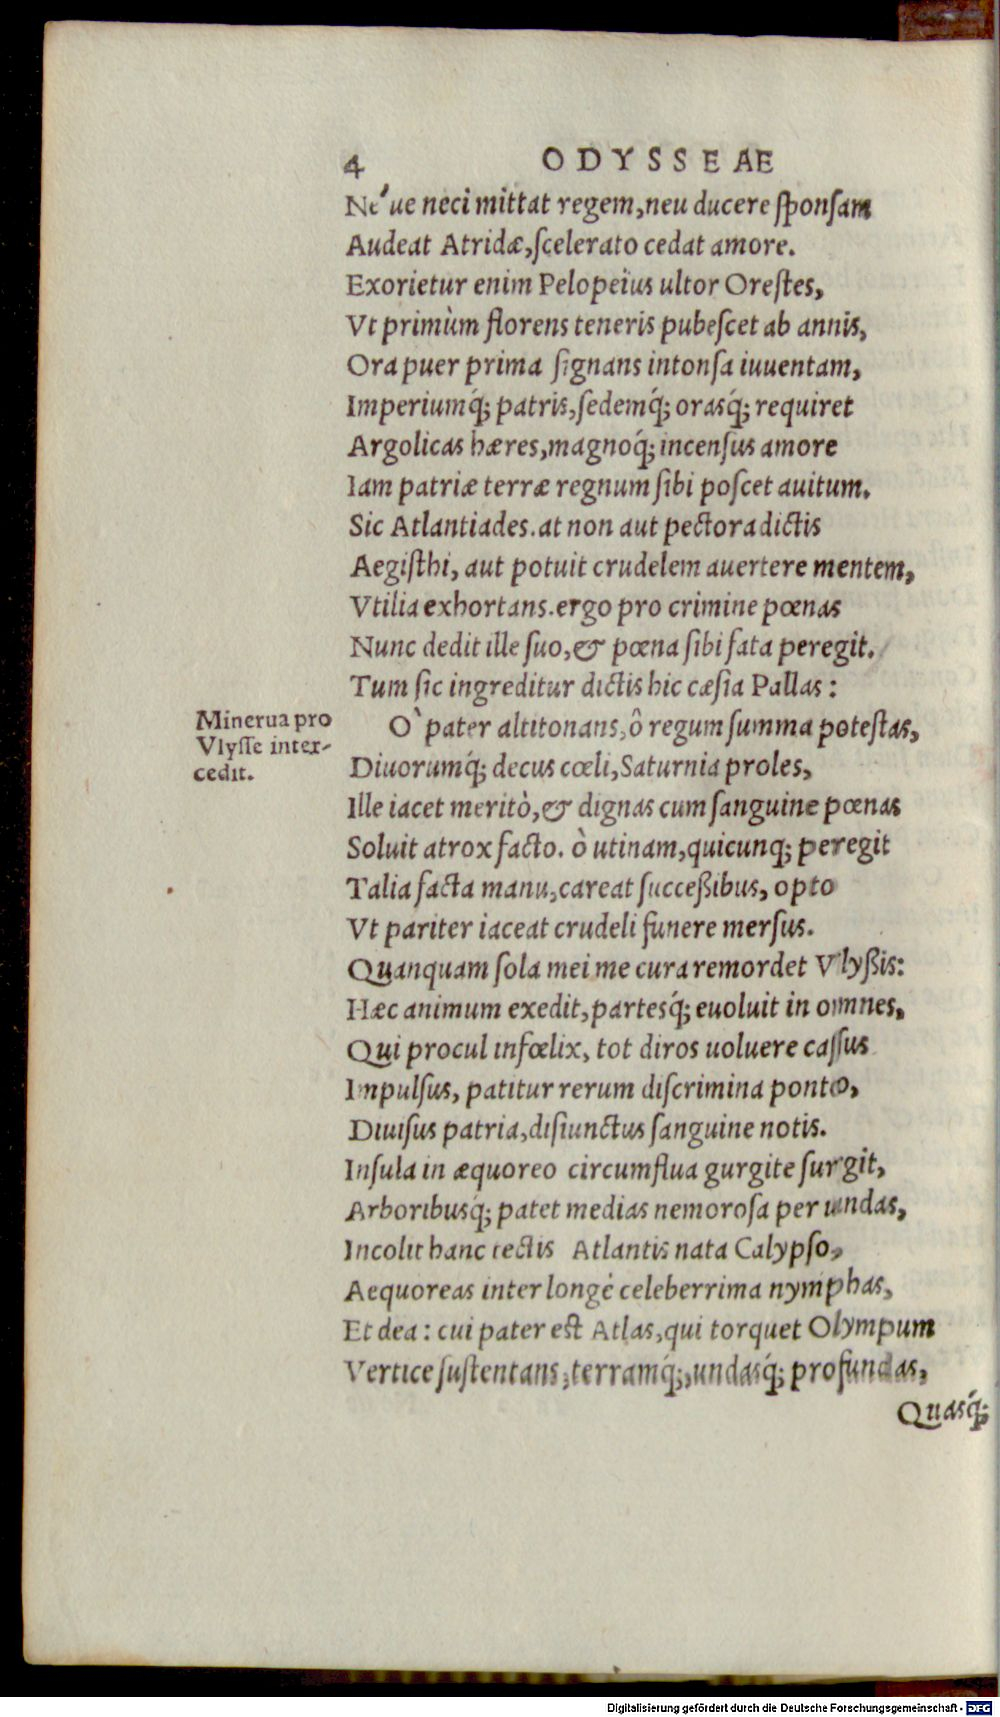 4 ODYSSEAE
Ne'ue neci mittat regem, neu ducere sponsam
Audeat Atridæ, scelerato cedat amore.
Exorietur enim Pelopeius ultor Orestes,
Vt primùm florens teneris pubescet ab annis,
Ora puer prima signans intonsa iuuentam,
Imperiumq́; patris, sedemq́; orasq́; requiret
Argolicas hæres, magnoq́; incensus amore
Iam patriæ terræ regnum sibi poscet auitum.
Sic Atlantiades. at non aut pectora dictis
Aegisthi, aut potuit crudelem auertere mentem,
Vtilia exhortans. ergo pro crimine pœnas
Nunc dedit ille suo, & pœna sibi fata peregit.
Tum sic ingreditur dictis hic cæsia Pallas:
Minerua pro
Vlysse inter-
cedit.
O` pater altitonans, ô regum summa potestas,
Diuorumq́; decus cœli, Saturnia proles,
Ille iacet meritò, & dignas cum sanguine pœnas
Soluit atrox facto. ò utinam, quicunq; peregit
Talia facta manu, careat succeßibus, opto
Vt pariter iaceat crudeli funere mersus.
Quanquam sola mei me cura remordet Vlyßis:
Hæc animum exedit, partesq́; euoluit in omnes,
Qui procul infœlix, tot diros uoluere cassus
Impulsus, patitur rerum discrimina ponto,
Diuisus patria, disiunctus sanguine notis.
Insula in æquoreo circumflua gurgite surgit,
Arboribusq́; patet medias nemorosa per undas,
Incolit hanc tectis Atlantis nata Calypso,
Aequoreas inter longè celeberrima nymphas,
Et dea: cui pater est Atlas, qui torquet Olympum
Vertice sustentans, terramq́;, undasq́; profundas,
Quasq́;
Digitalisierung gefördert durch die Deutsche Forschungsgemeinschaft - DFG